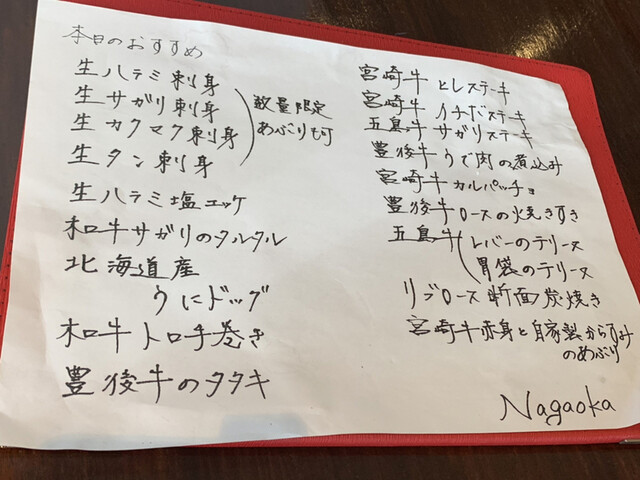 本日のおすすめ
生ハラミ刺身
生サガリ刺身
生カクマク刺身
生タン刺身
数量限定
あぶりも可
生ハラミ塩ユッケ
和牛サガリのタルタル
北海道産
うにドッグ
和牛トロ手巻き
豊後牛のタタキ
宮崎牛 ヒレステーキ
宮崎牛 イチボステーキ
五島牛 サガリステーキ
豊後牛 うで肉の煮込み
宮崎牛 カルパッチョ
豊後牛 ロースの焼きすき
五島牛 レバーのテリーヌ
胃袋のテリーヌ
リブロース断面炭焼き
宮崎牛赤身と自家製からすみ
のあぶり
Nagaoka